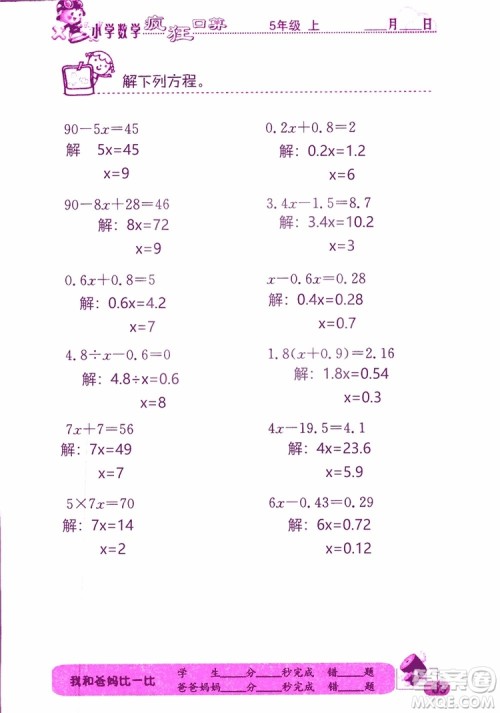 小学数学 疯狂口算 5年级 上 ___月___日
解下列方程。
90－5x＝45
解 5x=45
x=9
0.2x＋0.8＝2
解：0.2x=1.2
x=6
90－8x＋28＝46
解：8x=72
x=9
3.4x－1.5＝8.7
解：3.4x=10.2
x=3
0.6x＋0.8＝5
解：0.6x=4.2
x=7
x－0.6x＝0.28
解：0.4x=0.28
x=0.7
4.8÷x－0.6＝0
解：4.8÷x=0.6
x=8
1.8(x＋0.9)＝2.16
解：1.8x=0.54
x=0.3
7x＋7＝56
解：7x=49
x=7
4x－19.5＝4.1
解：4x=23.6
x=5.9
5×7x＝70
解：7x=14
x=2
6x－0.43＝0.29
解：6x=0.72
x=0.12
我和爸妈比一比
学 生___分___秒完成 错___题
爸爸妈妈___分___秒完成 错___题
答案圈
MXQE.COM